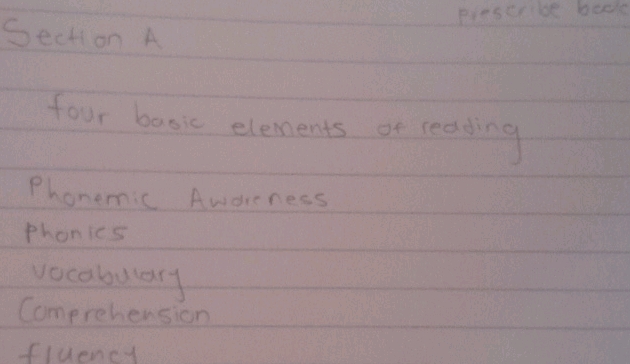 prescribe book
Section A
four basic elements of reading
Phonemic Awareness
Phonics
vocabulary
Comprehension
fluency